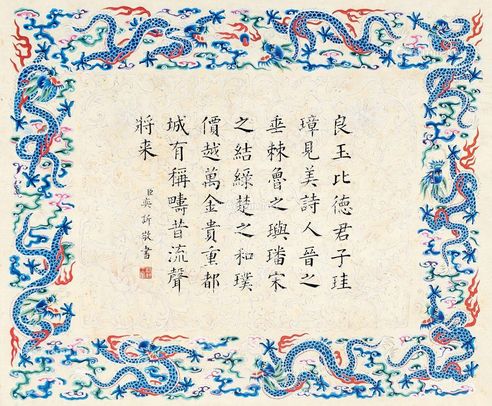 良玉比德君子珪
璋見美詩人晉之
垂棘魯之璵璠宋
之結綠楚之和璞
價越萬金貴重都
城有稱疇昔流聲
將来
臣奭訢敬書